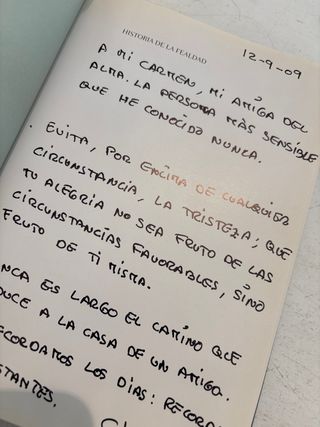 HISTORIA DE LA FEALDAD
12-9-09
A MI CARMEN, MI AMIGA DEL
ALMA. LA PERSONA MÁS SENSIBLE
QUE HE CONOCIDO NUNCA.
. EVITA, POR ENCIMA DE CUALQUIER
CIRCUNSTANCIA, LA TRISTEZA; QUE
TU ALEGRIA NO SEA FRUTO DE LAS
CIRCUNSTANCIAS FAVORABLES, SINO
FRUTO DE TI MISMA.
NCA ES LARGO EL CAMINO QUE
DUCE A LA CASA DE UN AMIGO.
ECORDAMOS LOS DIAS: RECORDA
STANTES.